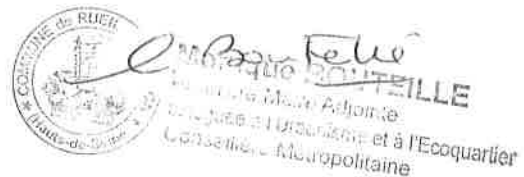 COMMUNE de RUEIL
(Hauts-de-Seine)
Monique BOUTEILLE
Maire Adjointe
déléguée à l'Urbanisme et à l'Ecoquartier
Conseillère Métropolitaine